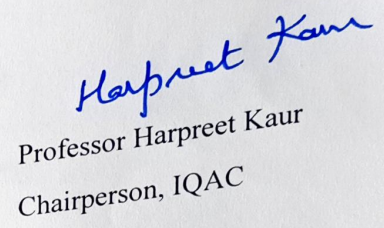 Harpreet Kaur
Professor Harpreet Kaur
Chairperson, IQAC